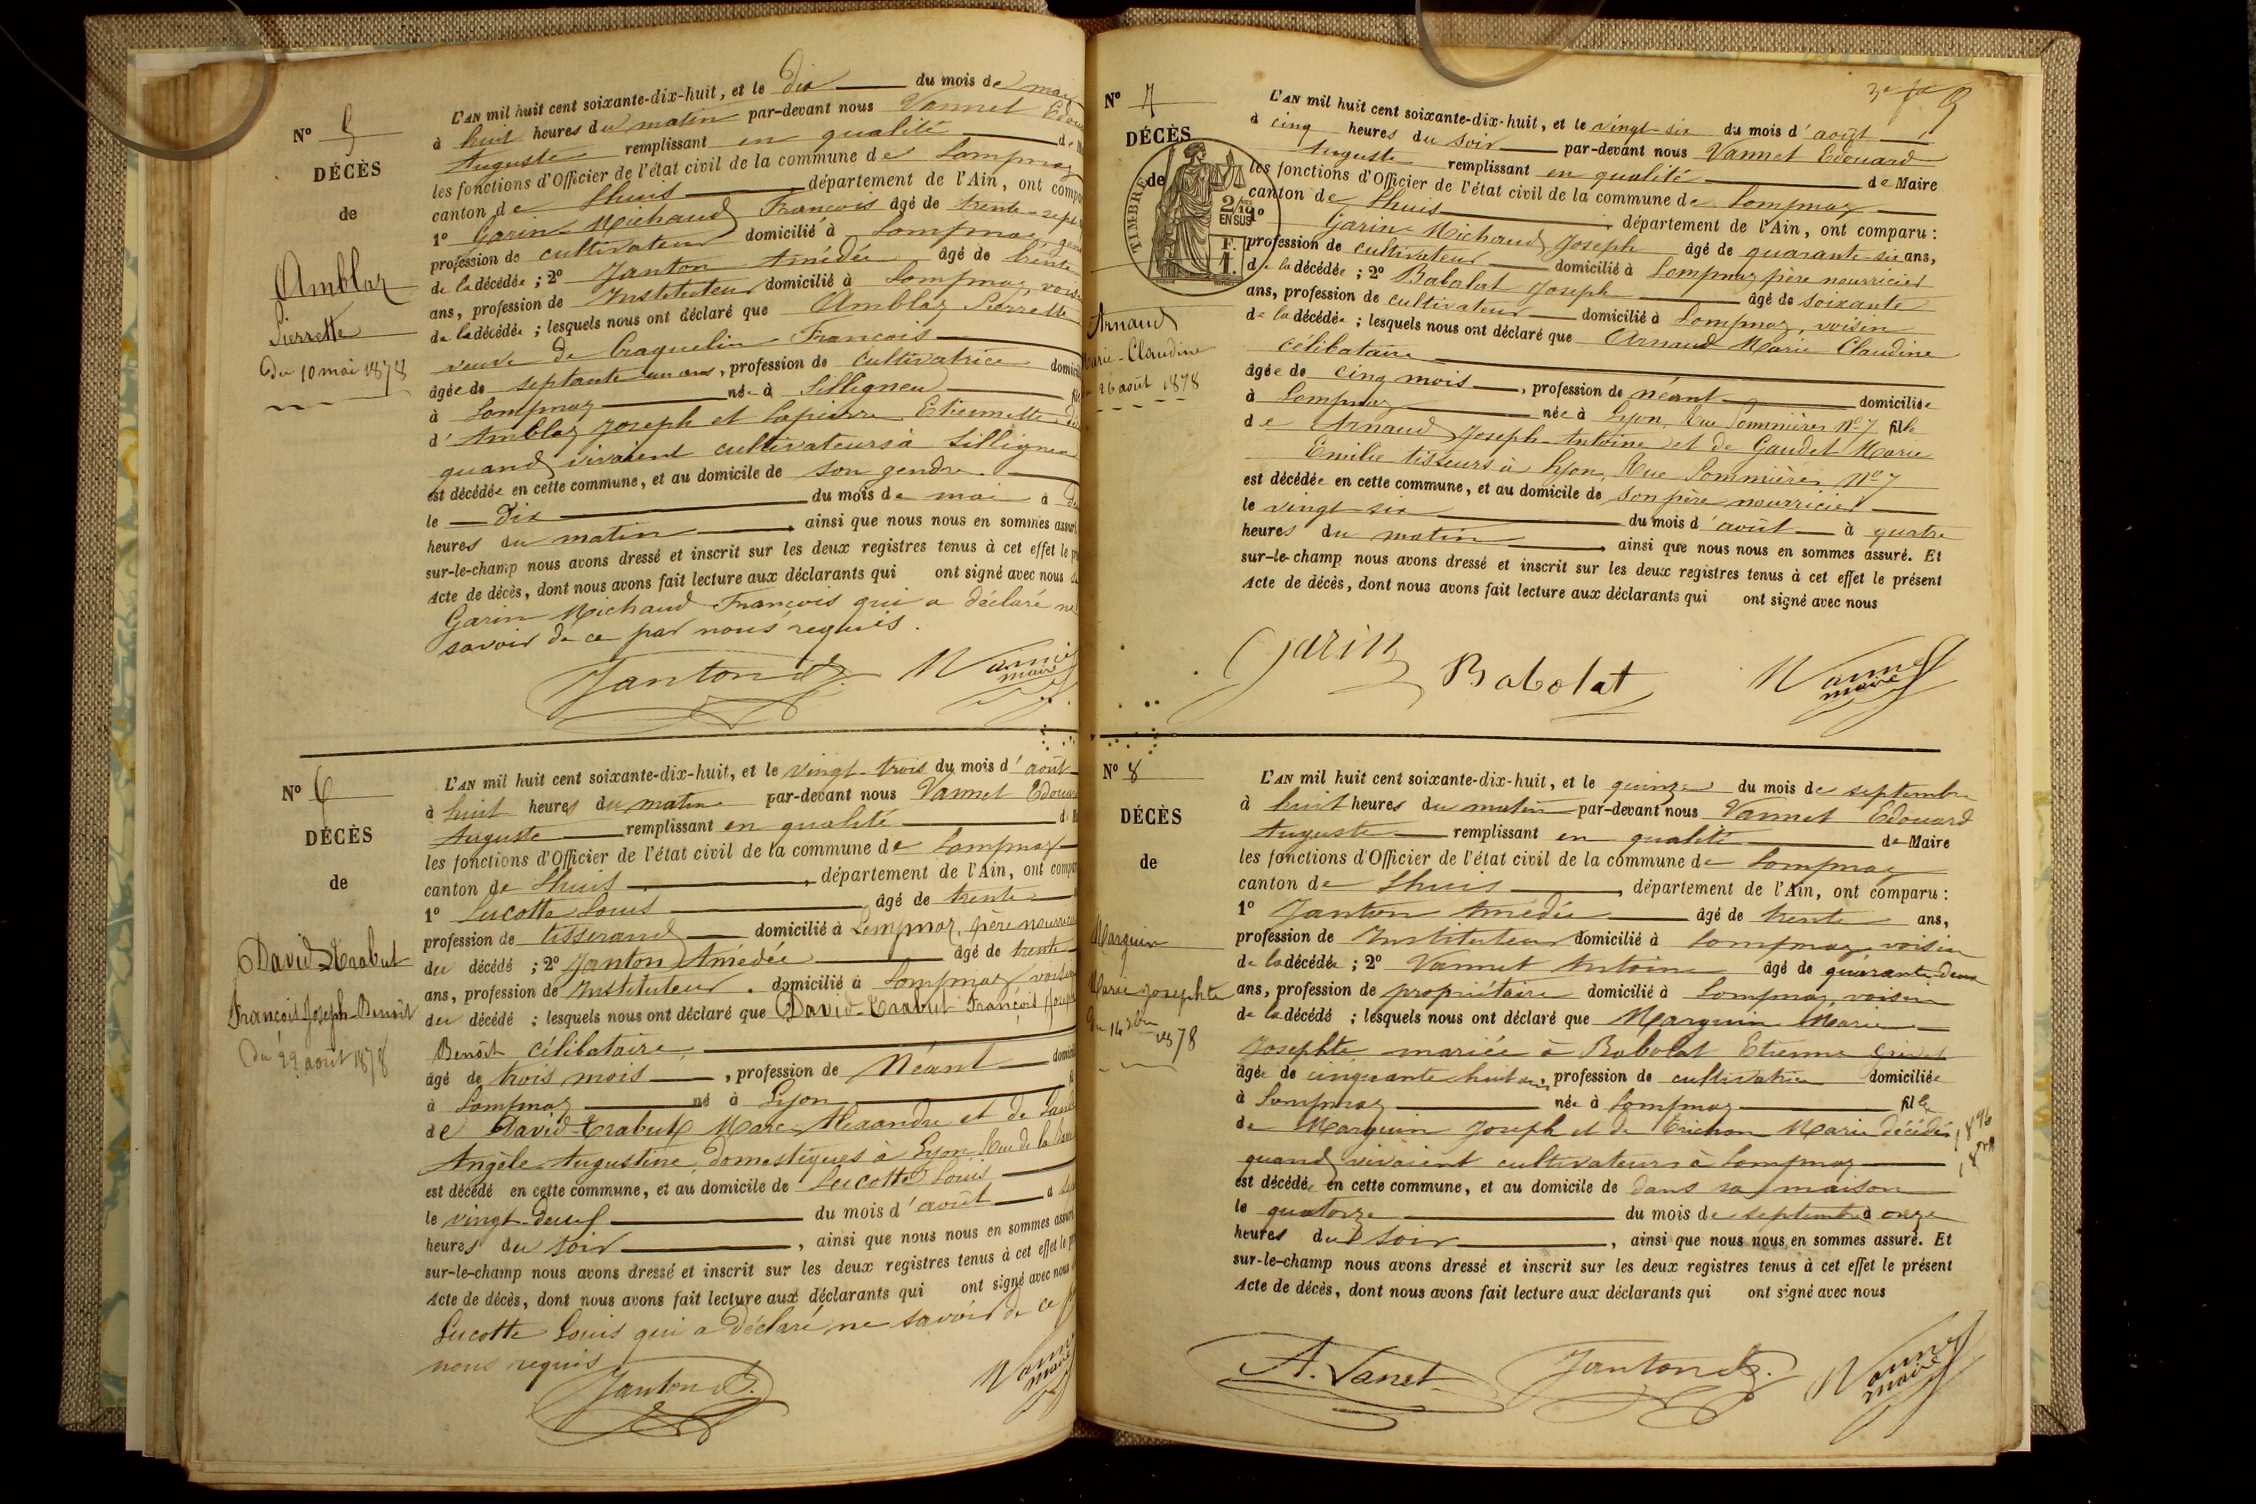 N° 5
DÉCÈS
de
Amblaz
Pierrette
Du 10 mai 1878
L'AN mil huit cent soixante-dix-huit, et le dix du mois de mai
à huit heures du matin par-devant nous Vannet
Auguste remplissant en qualité
les fonctions d'Officier de l'état civil de la commune de Lompnaz
canton de Lhuis département de l'Ain, ont
1° Garin-Michaud François âgé de trente-sept
profession de cultivateur domicilié à Lompnaz,
de la décédée ; 2° Janton Amédée âgé de trente
ans, profession de Instituteur domicilié à Lompnaz,
de la décédée ; lesquels nous ont déclaré que Amblaz Pierrette
veuve de Craquelin François
âgée de septante-un ans, profession de cultivatrice
à Lompnaz née à Silligneu
d'Amblaz Joseph et Etiennette
quand vivaient cultivateurs à
est décédée en cette commune, et au domicile de son gendre
le dix du mois de mai à
heures du matin, ainsi que nous nous en sommes
sur-le-champ nous avons dressé et inscrit sur les deux registres tenus à cet effet le
Acte de décès, dont nous avons fait lecture aux déclarants qui ont signé avec nous
Garin Michaud François qui a déclaré ne
savoir de ce par nous requis.
Janton A.
maire
N° 6
DÉCÈS
de
David-Trabut
François-Joseph-Benoît
Du 22 août 1878
L'AN mil huit cent soixante-dix-huit, et le vingt-trois du mois d'août
à huit heures du matin par-devant nous Vannet
Auguste remplissant en qualité
les fonctions d'Officier de l'état civil de la commune de Lompnaz
canton de Lhuis, département de l'Ain, ont
1° Lucotte Louis âgé de trente
profession de tisserand domicilié à Lompnaz, père
du décédé ; 2° Janton Amédée âgé de trente
ans, profession de Instituteur, domicilié à Lompnaz,
du décédé ; lesquels nous ont déclaré que David-Trabut François
Benoît célibataire
âgé de trois mois, profession de Néant
à Lompnaz né à Lyon
de David-Trabut Marc-Alexandre et de
Angèle-Augustine domestiques à Lyon Rue de la
est décédé en cette commune, et au domicile de Lucotte Louis
le vingt-deux du mois d'août à
heures du soir, ainsi que nous nous en sommes
sur-le-champ nous avons dressé et inscrit sur les deux registres tenus à cet effet le
Acte de décès, dont nous avons fait lecture aux déclarants qui ont signé avec nous
Lucotte Louis qui a déclaré ne savoir de ce
nous requis
Janton A.
maire
N° 7
DÉCÈS
de
TIMBRE
2/10 EN SUS
F. 1.
Arnaud
Marie-Claudine
26 août 1878
L'AN mil huit cent soixante-dix-huit, et le vingt-six du mois d'août
à cinq heures du soir par-devant nous Vannet Edouard
Auguste remplissant en qualité de Maire
les fonctions d'Officier de l'état civil de la commune de Lompnaz
canton de Lhuis, département de l'Ain, ont comparu :
1° Garin-Michaud Joseph âgé de quarante-six ans,
profession de cultivateur domicilié à Lompnaz père nourricier
de la décédée ; 2° Babolat Joseph âgé de soixante
ans, profession de cultivateur domicilié à Lompnaz, voisin
de la décédée ; lesquels nous ont déclaré que Arnaud Marie Claudine
célibataire
âgée de cinq mois, profession de néant domiciliée
à Lompnaz née à Lyon, Rue N° 7 fille
de Arnaud Joseph-Antoine et de Gaudet Marie
Emilie tisseurs à Lyon, Rue N° 7
est décédée en cette commune, et au domicile de son père nourricier
le vingt-six du mois d'août à quatre
heures du matin, ainsi que nous nous en sommes assuré. Et
sur-le-champ nous avons dressé et inscrit sur les deux registres tenus à cet effet le présent
Acte de décès, dont nous avons fait lecture aux déclarants qui ont signé avec nous
Garin
Babolat
maire
N° 8
DÉCÈS
de
Marguin
Marie Josephte
L'AN mil huit cent soixante-dix-huit, et le quinze du mois de septembre
à huit heures du matin par-devant nous Vannet Edouard
Auguste remplissant en qualité de Maire
les fonctions d'Officier de l'état civil de la commune de Lompnaz
canton de Lhuis, département de l'Ain, ont comparu :
1° Janton Amédée âgé de trente ans,
profession de Instituteur domicilié à Lompnaz voisin
de la décédée ; 2° Vannet Antoine âgé de quarante-deux
ans, profession de propriétaire domicilié à Lompnaz, voisin
de la décédé ; lesquels nous ont déclaré que Marguin Marie
Josephte, mariée à Babolat Etienne
âgée de cinquante-huit ans, profession de cultivatrice domiciliée
à Lompnaz née à Lompnaz fille
de Marguin Joseph et de Marie décédés
quand vivaient cultivateurs à Lompnaz
est décédée en cette commune, et au domicile de dans sa maison
le quatorze du mois de septembre à onze
heures du soir, ainsi que nous nous en sommes assuré. Et
sur-le-champ nous avons dressé et inscrit sur les deux registres tenus à cet effet le présent
Acte de décès, dont nous avons fait lecture aux déclarants qui ont signé avec nous
A. Vanet
Janton A.
maire